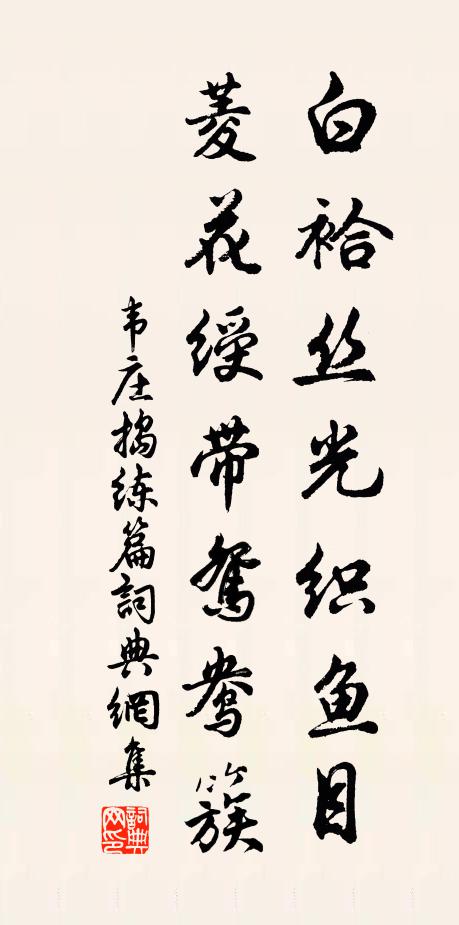 白袷丝光织鱼目
菱花绶带鸳鸯簇
韦庄捣练篇詞典網集
詞典网印